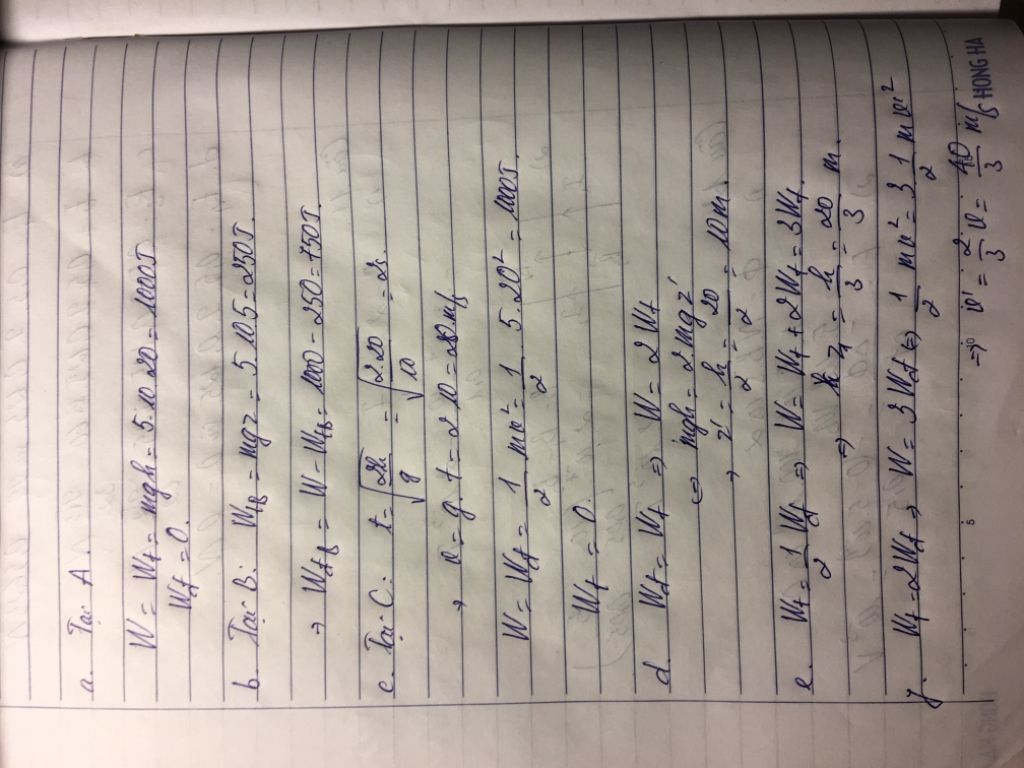 a. Tại A.
W = Wt = mgh = 5.10.20 = 1000J
Wđ = 0.
b. Tại B: WtB = mgz = 5.10.5 = 250J.
→ WđB = W - WtB = 1000 - 250 = 750J.
c. Tại C: t = √(2h/g) = √(2.20/10) = 2s.
→ v = g.t = 2.10 = 20 m/s
W = Wđ = 1/2 mv² = 1/2 . 5.20² = 1000J.
Wt = 0.
d. Wđ = Wt ⇒ W = 2Wt
⇔ mgh = 2mgz'
→ z' = h/2 = 20/2 = 10m.
e. Wt = 1/2 Wđ ⇒ W = Wt + 2Wt = 3Wt.
⇒ z = h/3 = 20/3 m.
f. Wt = 2Wđ → W = 3Wđ ⇒ 1/2 mv² = 3 1/2 mv'²
⇒ v' = 2/3 v = 40/3 m/s
5
HONG HA